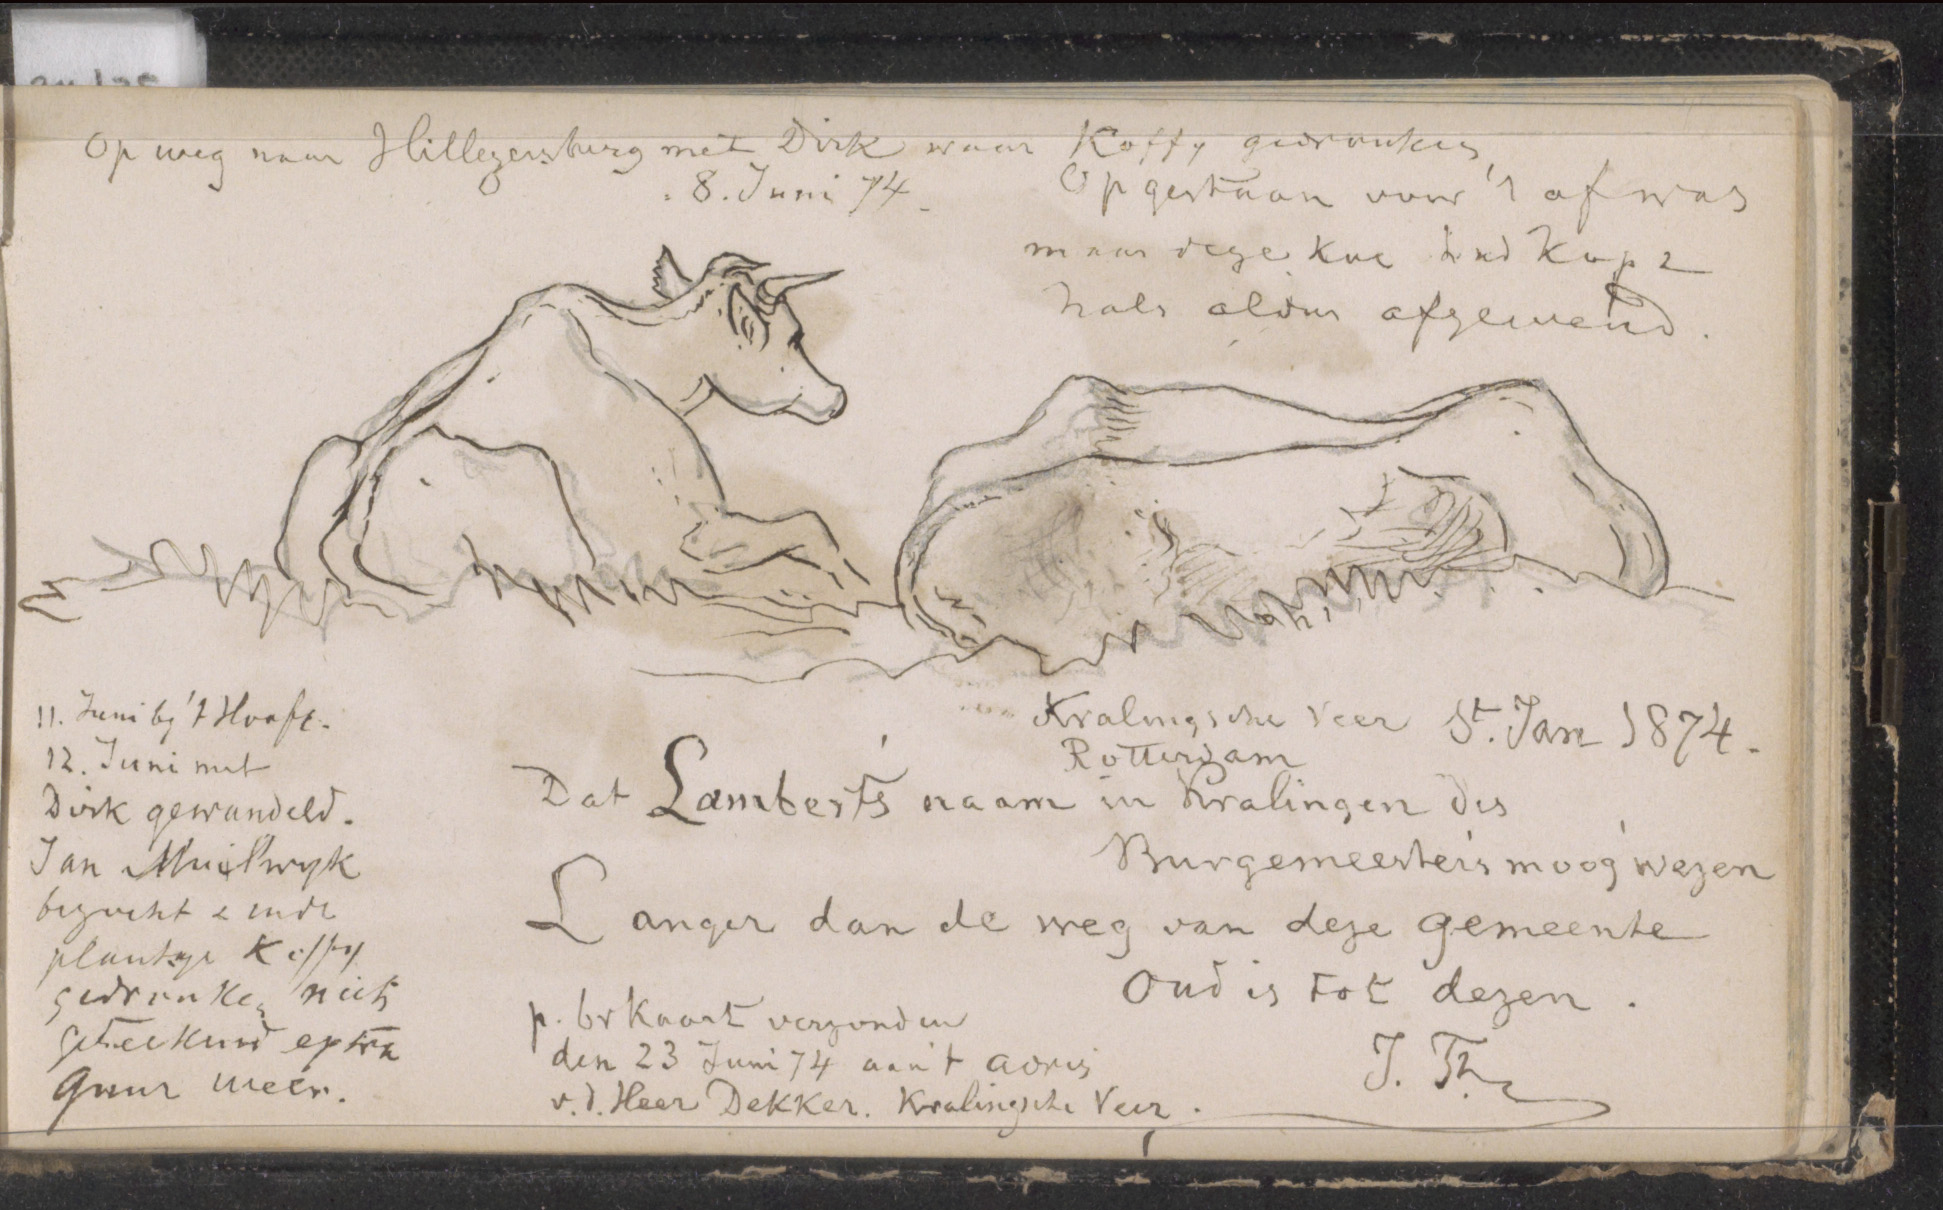 Op weg naar Hillegersburg met Dirk waar Koffy gedronken,
8. Juni 74.
Opgestaan voor 't af was
maar deze Koe had Kop &
hals aldus afgewend.
11. Juni by 't Hooft.
12. Juni met
Dirk gewandeld.
Jan
bezocht & inde
plantage Koffy
gedronken niets
geteekend extra
guur weer.
Kralingsche Veer St. Jan 1874.
Rotterdam
Dat Lambert's naam in Kralingen des
Burgemeester's moog' wezen
Langer dan de weg van deze gemeente
Oud is tot dezen.
J. Th.
p. brKaart verzonden
den 23 Juni 74 aan 't adres
v.d. Heer Dekker. Kralingsche Veer.